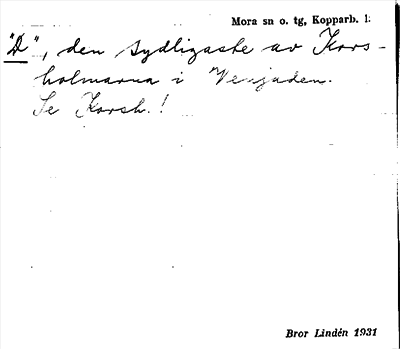 Mora sn o. tg, Kopparb. l.
"D", den sydligaste av Kors-
holmarna i Venjaden.
Se Korsh.!
Bror Lindén 1931